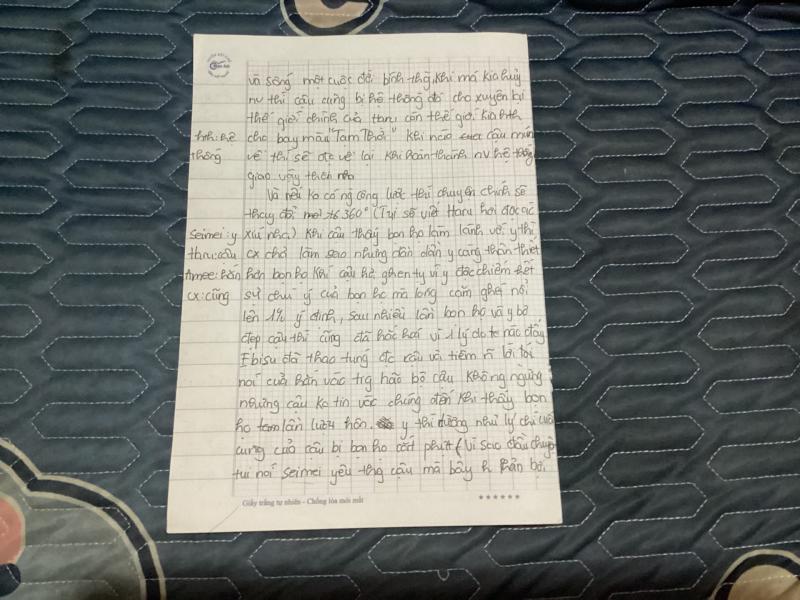 và sống một cuộc đời bình thg, khi mà kia hủy
nv thì cậu cũng bị hệ thống đó cho xuyên lại
thế giới chính của haru còn thế giới kia hth
hth: hệ cho bay màu "Tam Thời" khi nào cậu mún
thống về thì sẽ đc về lại khi hoàn thành nv hệ thống
giao vậy thiên nha
Và nếu ko có ng công lược thì chuyện chính sẽ
thay đổi 360° (Tụi sẽ viết Haru hơi độc ác
Seimei: y xíu nha) khi cậu thấy bọn họ làm lành với y thì
haru: cậu cx chả làm sao nhưng dần dần y càng thân thiết
Amee: hắn bọn họ khi cậu ghen tỵ vì y độc chiếm hết
cx: cũng sự chú ý của bọn họ mà lòng căm ghé nổi
lên 1% ý định, sau nhiều lần bọn họ và y bơ
đẹp cậu thì cũng đã hắc hoá vì 1 lý do te nào đấy
Ebisu đã thao túng đc cậu và tiêm rỉ lời tối
nói của hắn vào trg não bộ cậu không ngừng
nhưng cậu ko tin vào chúng đến khi thấy bọn
họ lần lượt hôn. y thì dường như lý chí cuối
cùng của cậu bị bọn họ cắt phứt (Vì sao đầu chuyện
tui nói Seimei yêu thg cậu mà bây h phản bội
Giấy trắng tự nhiên - Chống lóa mỏi mắt